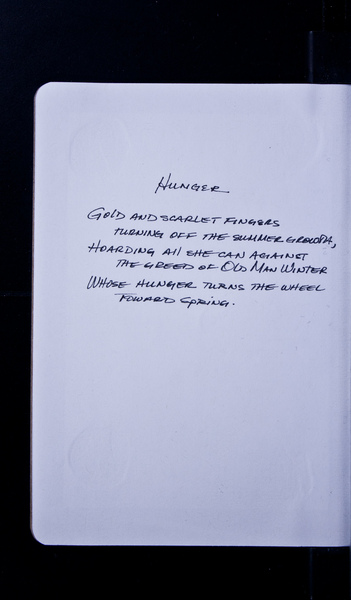 HUNGER
GOLD AND SCARLET FINGERS
TURNING OFF THE SUMMER GROWTH,
HOARDING All SHE CAN AGAINST
THE GREED OF OLD MAN WINTER
WHOSE HUNGER TURNS THE WHEEL
TOWARD SPRING.